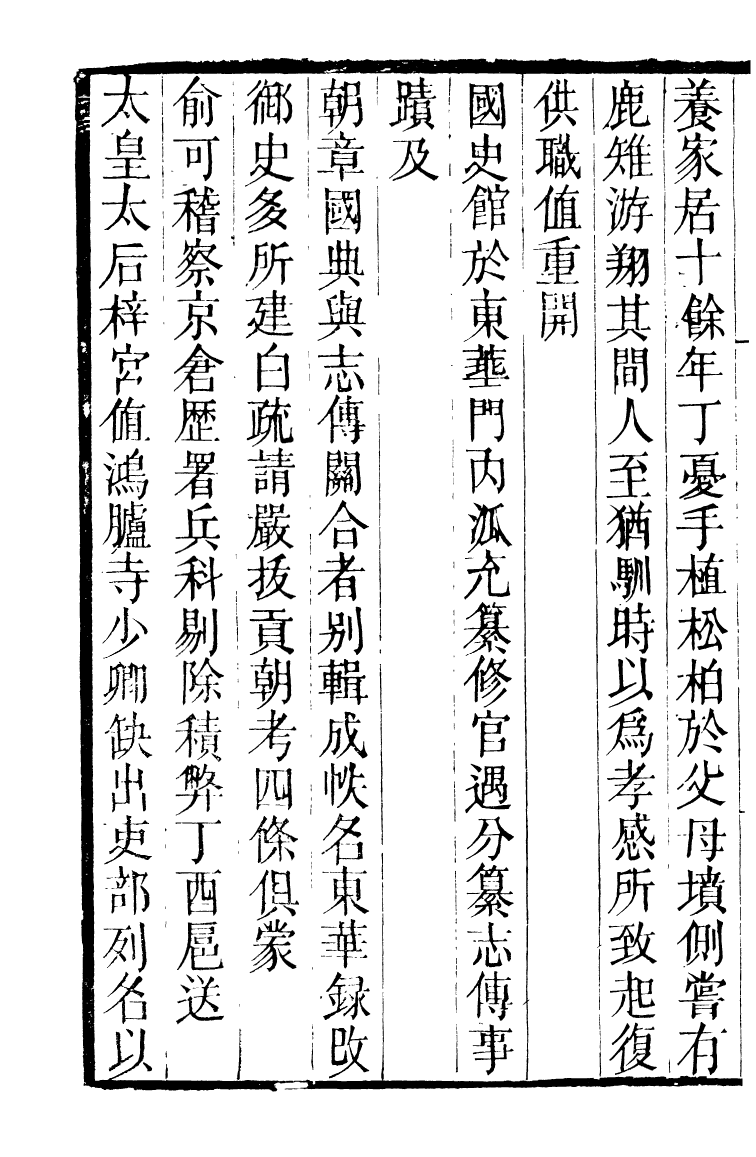 養家居十餘年丁憂手植松柏於父母墳側嘗有
鹿雉游翔其間人至猶馴時以爲孝感所致起復
供職值重開
國史館於東華門內派充纂修官遇分纂志傳事
蹟及
朝章國典與志傳關合者别輯成帙名東華録改
御史多所建白疏請嚴拔貢朝考四條俱蒙
俞可稽察京倉歷署兵科剔除積弊丁酉扈送
太皇太后梓宮值鴻臚寺少卿缺出吏部列名以